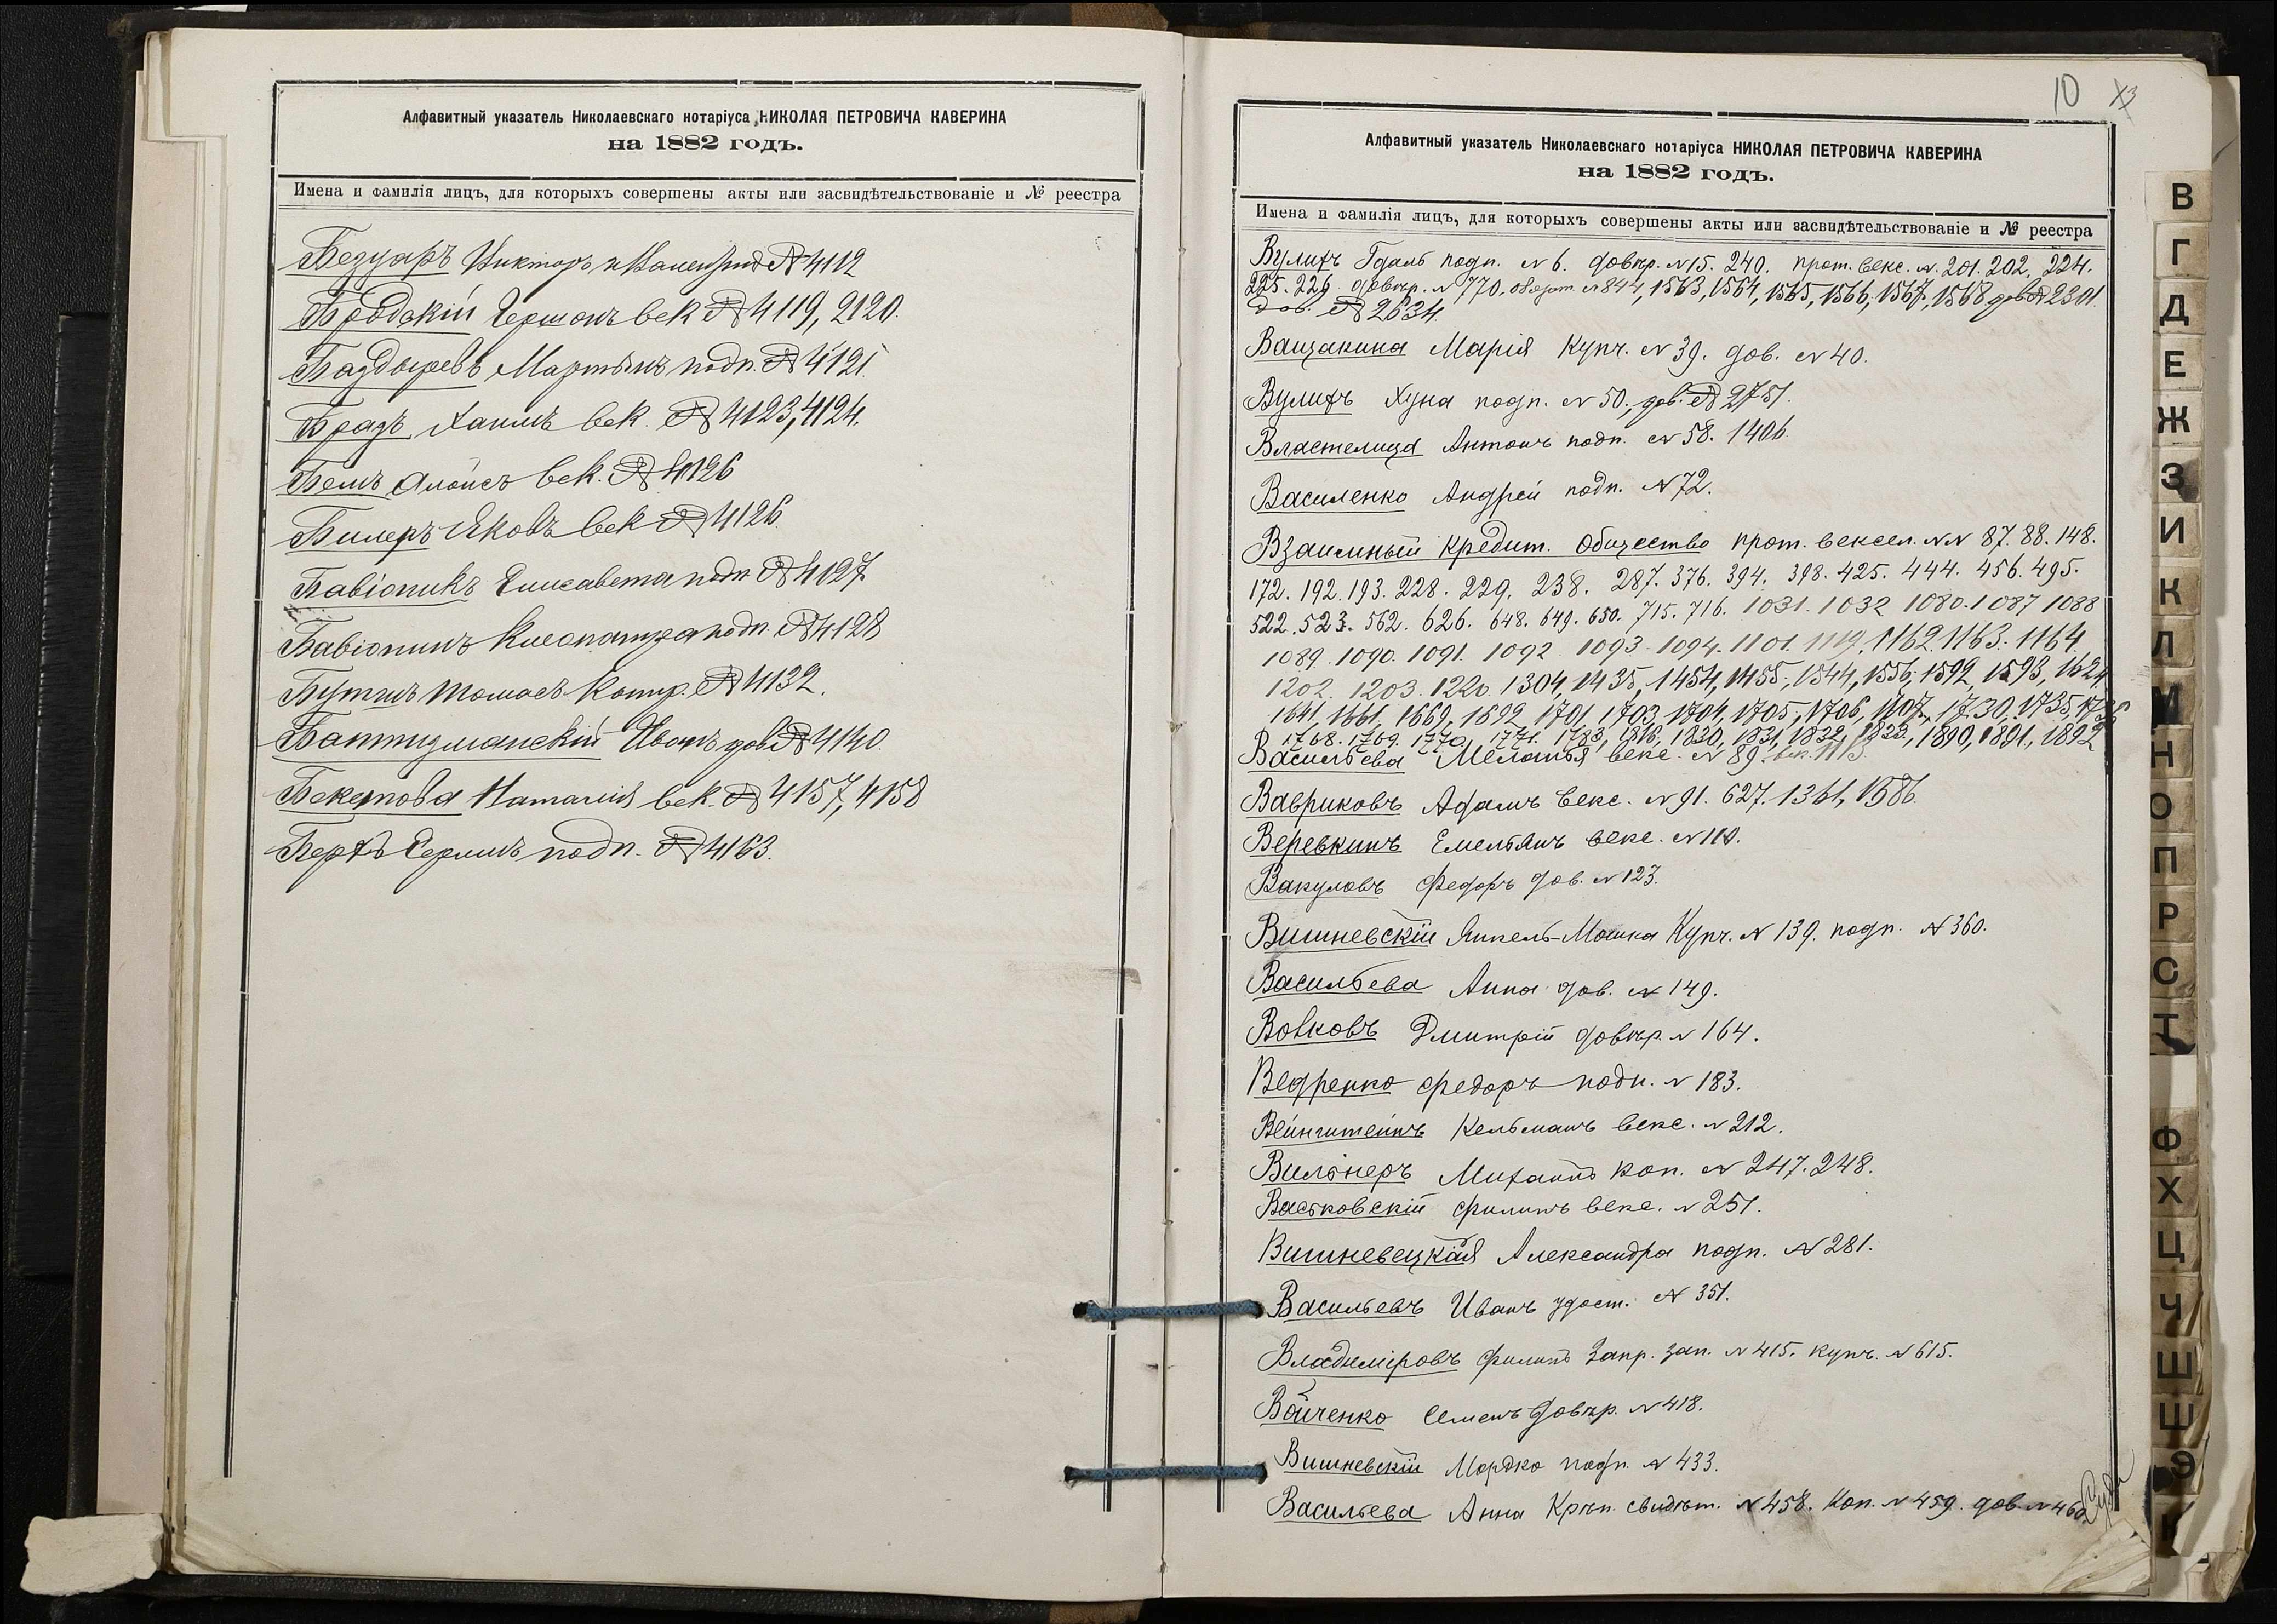 Алфавитный указатель Николаевскаго нотаріуса НИКОЛАЯ ПЕТРОВИЧА КАВЕРИНА
на 1882 годъ.
Имена и фамилія лицъ, для которыхъ совершены акты или засвидѣтельствованіе и № реестра
Безуаръ Викторъ и № 4112
Бродскій Гершонъ век № 4119, 2120.
Баздыревъ Мартынъ подп. № 4121.
Брадъ Хаимъ век. № 4123, 4124.
Бемъ Алоисъ век. № 4126
Билеръ Яковъ век № 4126.
Елисавета подп № 4127.
Клеопатра подп. № 4128
Томасъ контр. № 4132.
Иванъ дов. № 4140.
Бекетова Наталія век. № 4157, 4158
подп. № 4163.
10
Алфавитный указатель Николаевскаго нотаріуса НИКОЛАЯ ПЕТРОВИЧА КАВЕРИНА
на 1882 годъ.
Имена и фамилія лицъ, для которыхъ совершены акты или засвидѣтельствованіе и № реестра
Вулихъ Гдаль подп. № 6. довѣр. № 15. 240. прот. векс. № 201. 202. 224.
225. 226. довѣр. № 770. № 844, 1563, 1564, 1565, 1566, 1567, 1568 дов № 2301.
дов. № 2634.
Ващакина Марія Купч. № 39. дов. № 40.
Вулихъ Хуна подп. № 50., дов. № 2751.
Властелица Антонъ подп. № 58. 1406.
Василенко Андрей подп. № 72.
Взаимный Кредит. Общество прот. вексел. №№ 87. 88. 148.
172. 192. 193. 228. 229. 238. 287. 376. 394. 398. 425. 444. 456. 495.
522. 523. 562. 626. 648. 649. 650. 715. 716. 1031. 1032 1080. 1087 1088
1089. 1090. 1091. 1092 1093. 1094. 1101. 1119. 1162. 1163. 1164
1202. 1203. 1220. 1304, 1435, 1454, 1455, 1544, 1556, 1592, 1593, 1624
1641, 1661, 1669, 1692, 1701, 1703, 1704, 1705, 1706, 1707, 1730, 1735, 1736
1768. 1769. 1770, 1771. 1783, 1816, 1830, 1831, 1832, 1833, 1890, 1891, 1892
Васильева Меланья векс. № 89. век. 1113.
Вавриковъ Адамъ векс. № 91. 627. 1361, 1586.
Веревкинъ Емельянъ векс. № 110.
Вакуловъ Федоръ дов. № 123.
Вишневскій Янкель-Мошка Купч. № 139. подп. № 360.
Васильева Анна дов. № 149.
Вовковъ Дмитрій довѣр. № 164.
Ведренко Федоръ подп. № 183.
Вейнштейнъ Кельманъ векс. № 212.
Вильнеръ Михаилъ коп. № 247. 248.
Васьковскій Филипъ векс. № 251.
Вишневецкая Александра подп. № 281.
Васильевъ Иванъ удост. № 351.
Владиміровъ Филипъ Запр. зап. № 415. купч. № 615.
Войченко Семенъ довѣр. № 418.
Вишневскій Мордко подп. № 433.
Васильева Анна Крѣп. свидѣт. № 458. Коп. № 459. дов. № 460.
В
Г
Д
Е
Ж
З
И
К
Л
М
Н
О
П
Р
С
Т
Ф
Х
Ц
Ч
Ш
Щ
Э